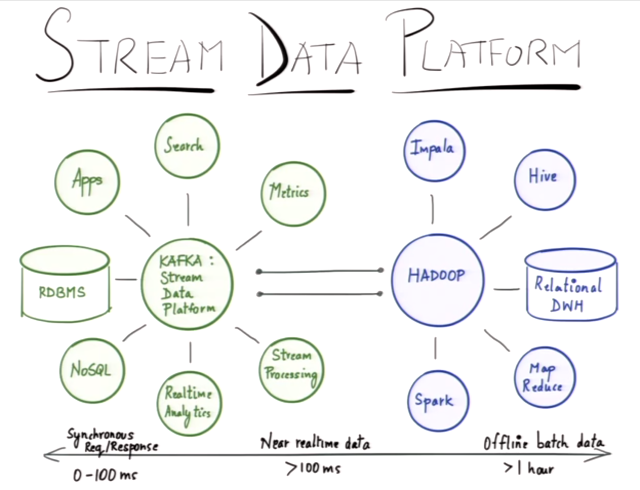 STREAM DATA PLATFORM
Search
Apps
Metrics
RDBMS
KAFKA:
Stream
Data
Platform
NoSQL
Realtime
Analytics
Stream
Processing
Impala
Hive
HADOOP
Relational
DWH
Map
Reduce
Spark
Synchronous
Req/Response
0-100 ms
Near realtime data
>100 ms
Offline batch data
>1 hour